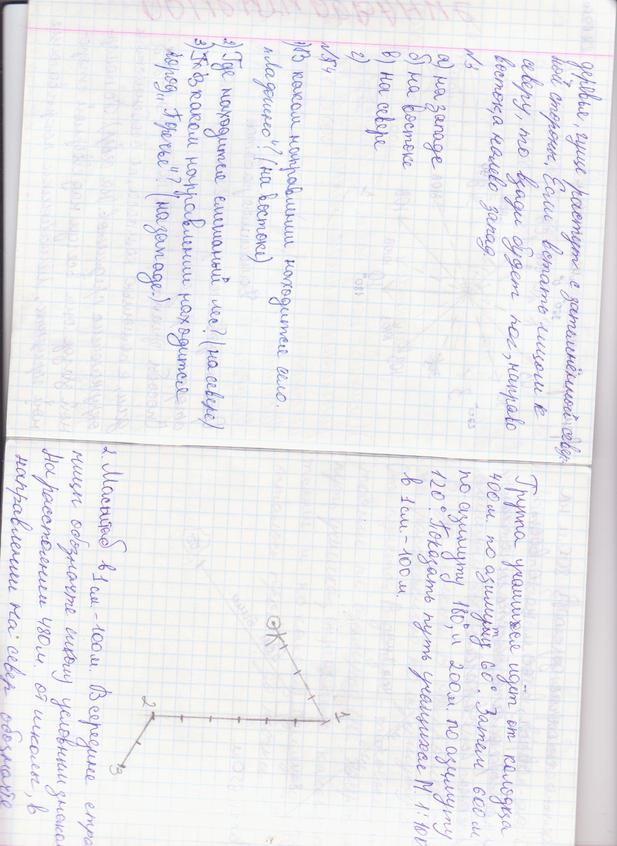 деревья, гуще растут с затемнённой север
ной стороны, Если встать лицом к
северу, то сзади будет юг, направо
восток, а налево запад
№3
а) на западе
б) на востоке
в) на севере
г)
№54
1) В каком направлении находится село.
„Ладкино"? (на востоке)
2) Где находится смешаный лес? (на севере)
3) В каком направлении находится
город „Поречье"? (на западе)
Группа учащихся идёт от колодца
400м. по азимуту 60°. Затем 600м.
по азимуту 180°, и 200м по азимуту
120°. Показать путь учащихся М 1:100
в 1см - 100м.
К
1
2
3
2 Масштаб в 1см - 100м В середине стра
ницы обозначте школу условным знаком
На расстоянии 480м. от школы, в
направлении на север обозначте